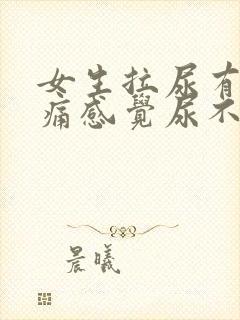 女生拉尿有
痛感覺尿不
晨曦